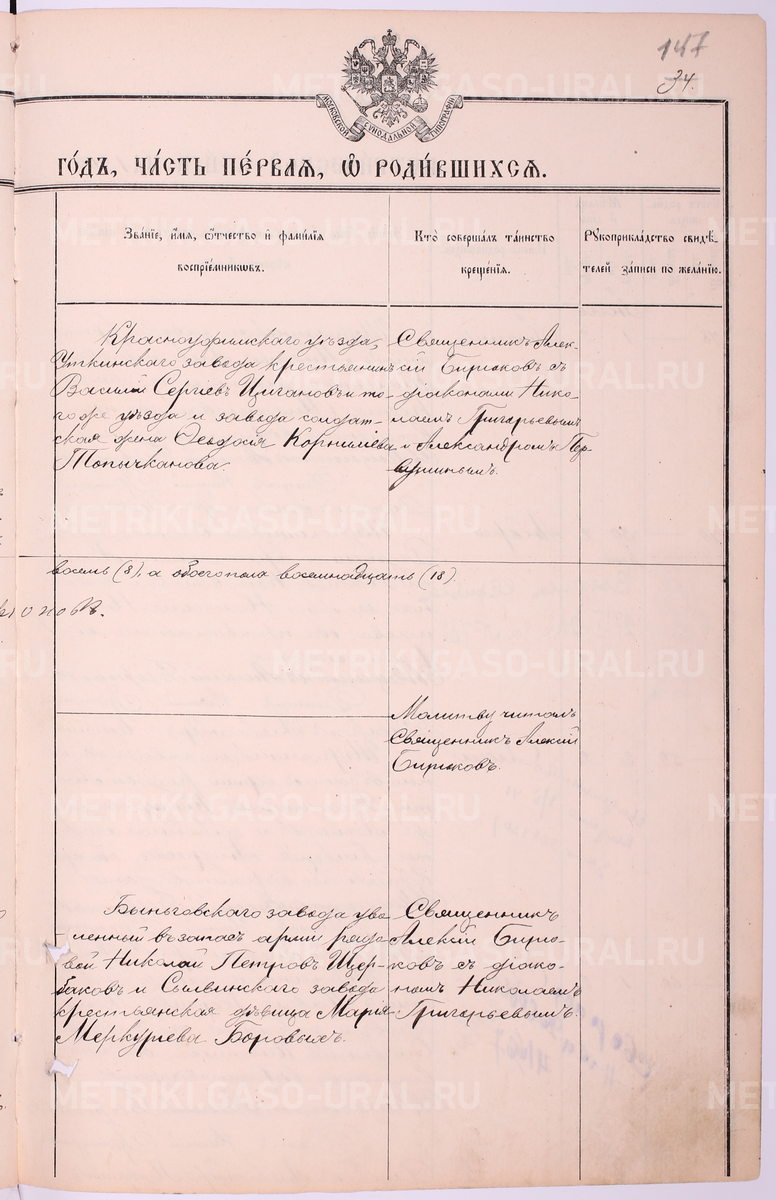 147
34.
МОСКОВСКОЙ СѴНОДАЛЬНОЙ ТИПОГРАФІИ
ГО́ДЪ, ЧА́СТЬ ПЕ́РВАѦ, Ѡ҆ РОДИ́ВШИХСѦ.
Зва́нїе, и҆́мѧ, ѻ҆́тчество и҆ фами́лїѧ
воспрїе́мникѡвъ.
Кто̀ соверша́лъ та́инство
креще́нїѧ.
Рꙋкоприкла́дство свидѣ́-
телей за́писи по жела́нїю.
Красноуфимскаго уѣзда,
Уткинскаго завода крестьянинъ
Василий Сергѣевъ Цигановъ и то-
гоже уѣзда и завода солдат-
ская жена Ѳеодосія Корнилиева
Топычканова.
Священникъ Алек-
сій Бирюковъ съ
діаконами Нико-
лаемъ Григорьевымъ
и Александромъ Пер-
восемь (8), а обоего пола восемнадцать (18)
Молитву читалъ
Священникъ Алексій
Бирюковъ.
Быньговскаго завода уво-
ленный въ запасъ арміи рядо-
вой Николай Петровъ Щер-
баковъ и Сылвинскаго завода
крестьянская дѣвица Марія
Меркурьева Боровыхъ.
Священникъ
Алексій Бирю-
ковъ съ діако-
номъ Николаемъ
Григорьевымъ.
METRIKI.GASO-URAL.RU